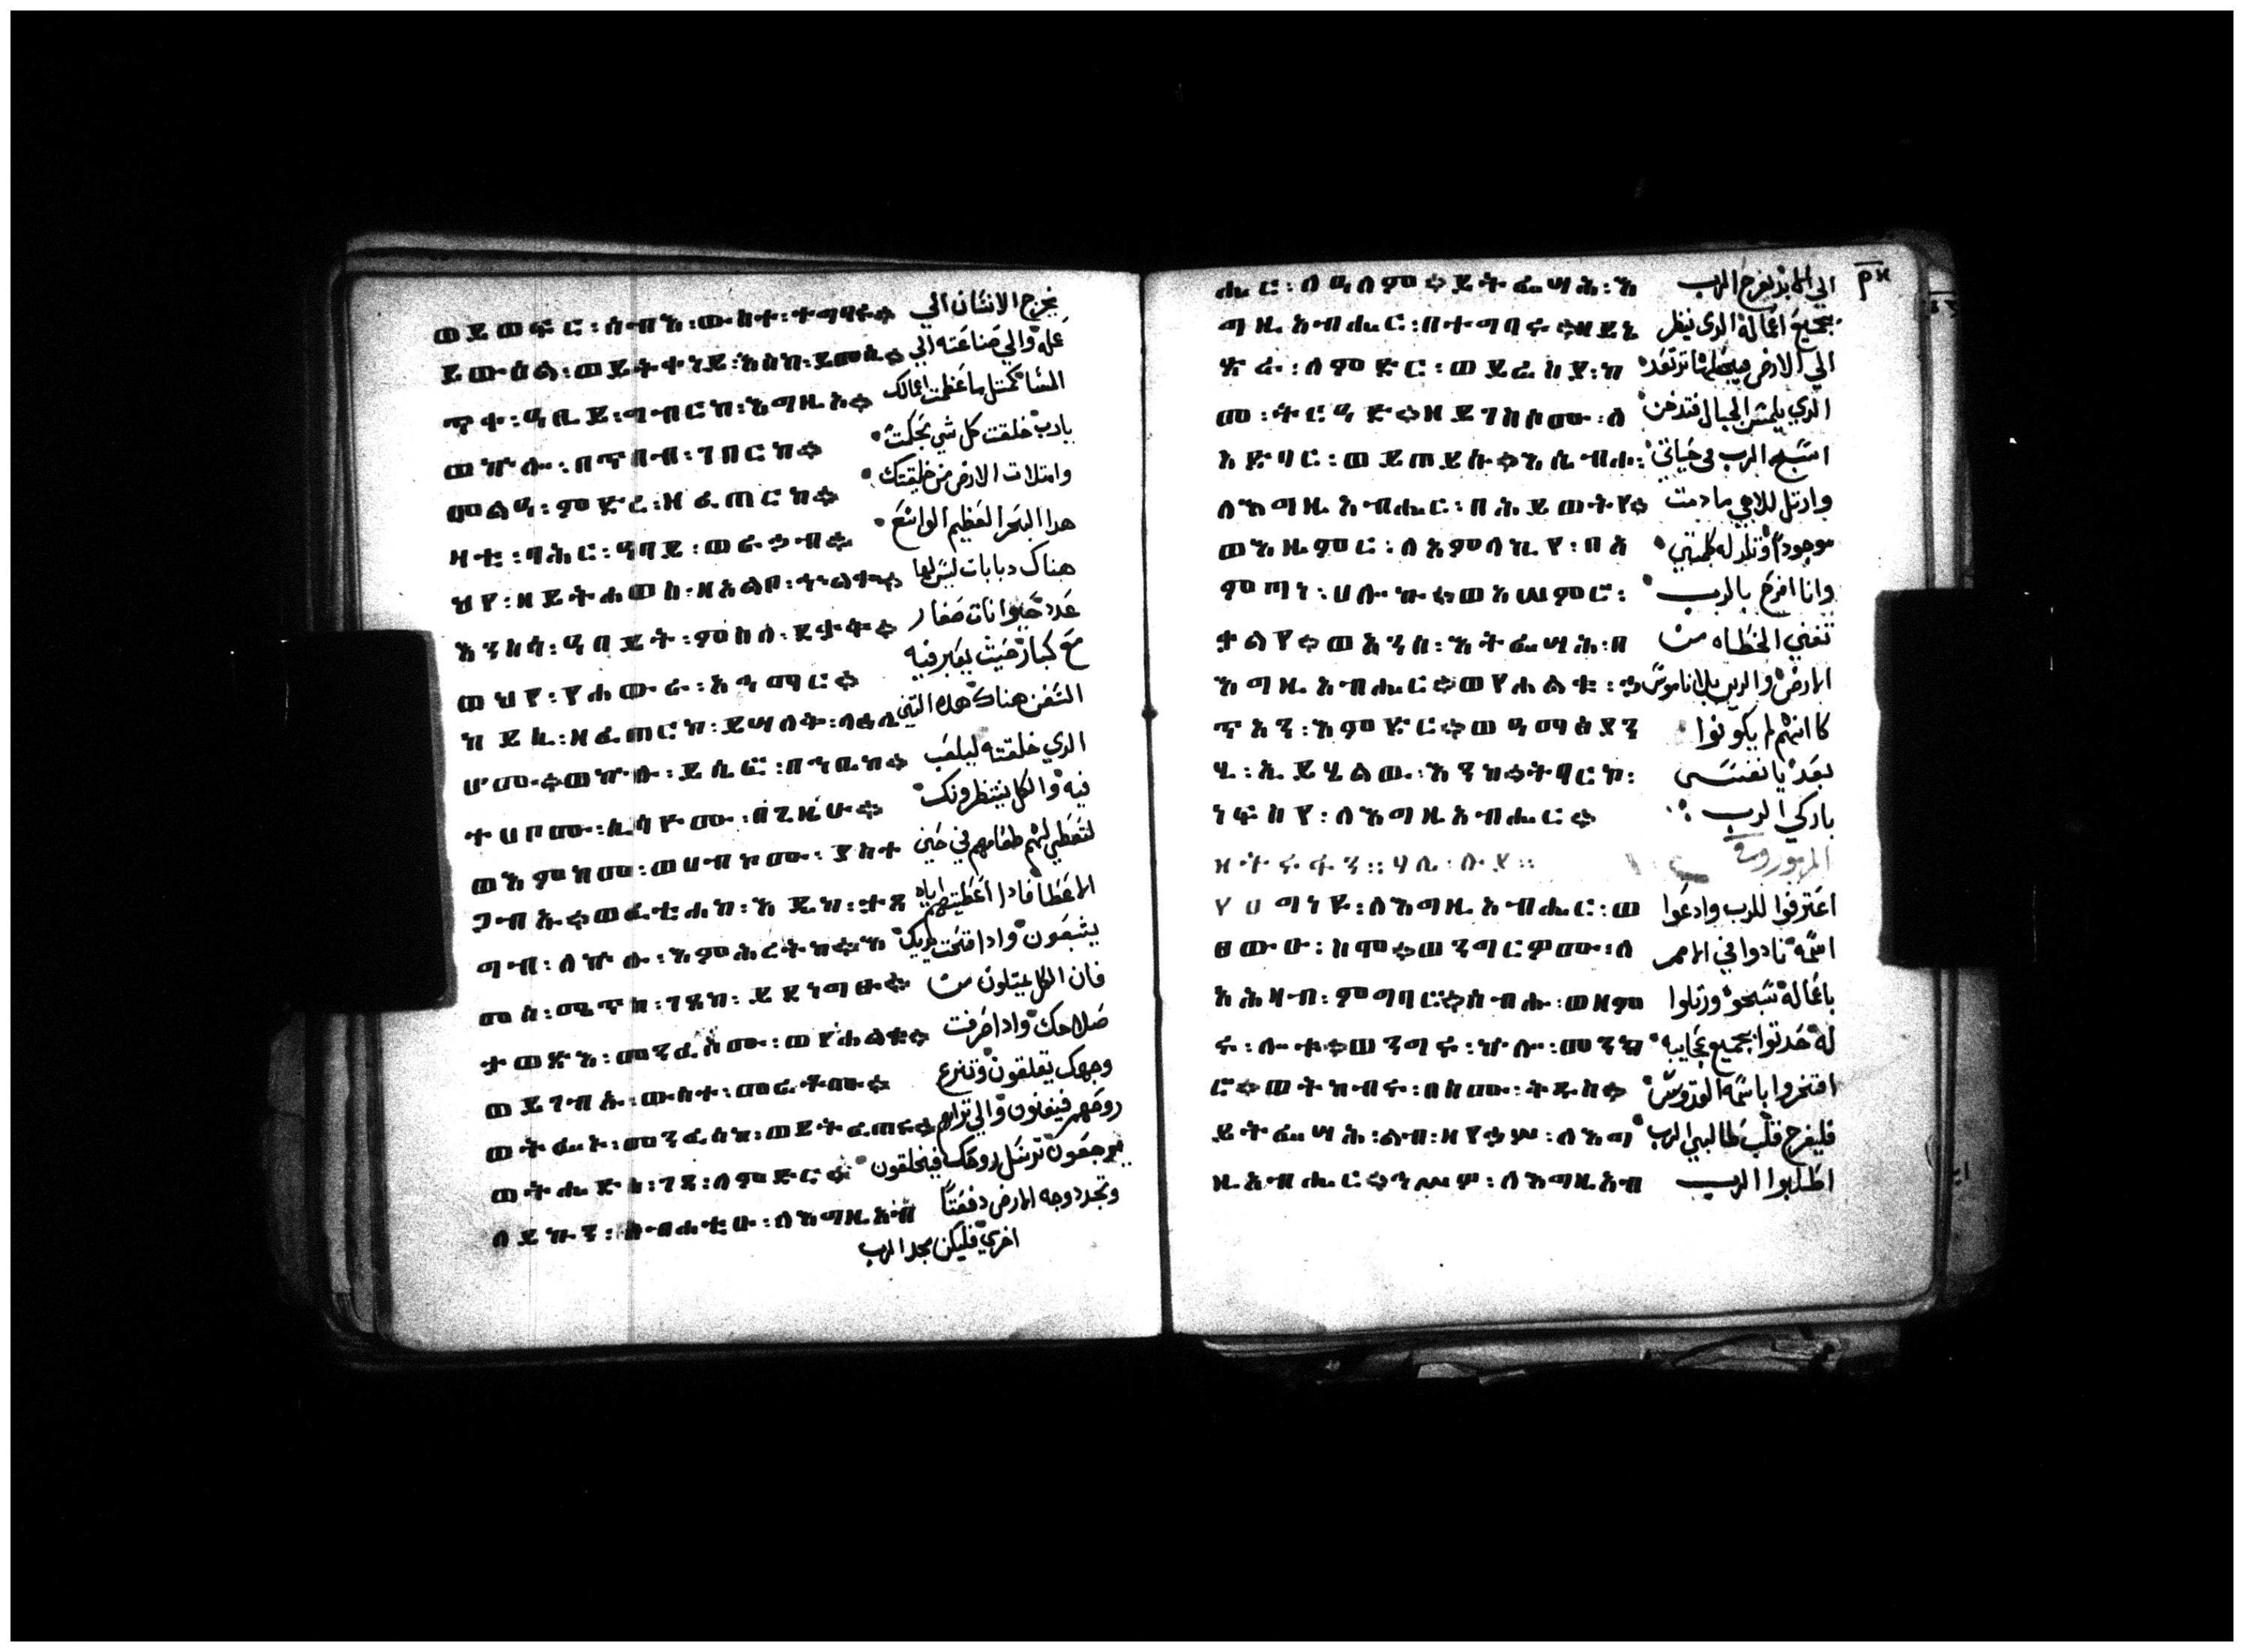 ወይወፍር፡ሰብእ፡ውስተ፡ተግባሩ። يخرج الانسان الي
ይውዕል፡ወይትቀነይ፡እስከ፡ይመሲ። عمله والي صناعته الي
ጥቀ፡ዓቢይ፡ግብርከ፡እግዚኦ። المسا كمثل ما عظمت اعمالك
ወኵሎ፡በጥበብ፡ገበርከ። يارب خلقت كل شي بحكمة
መልዓ፡ምድረ፡ዘፈጠርከ። وامتلات الارض من خليقتك
ዛቲ፡ባሕር፡ዓባይ፡ወራኅብ። هدا البحر العظيم الواسع
ህየ፡ዘይትሐወስ፡ዘአልቦ፡ኍልቈ። هناك دبابات ليس لها
እንስሳ፡ዓበይት፡ምስለ፡ደቃቅ። عدد حيوانات صغار
ወህየ፡የሐውራ፡አሕማር። مع كبار حيث يعبر فيه
ከይሲ፡ዘፈጠርከ፡ይሣለቅ፡ላዕሌ السفن هناك هده التنين
ሆሙ።ወኵሉ፡ይሴፎ፡በኀቤከ። الدي خلقته ليلعب
ተሀቦሙ፡ሲሳዮሙ፡በጊዜሁ። فيه والكل ينتظرونك
ወእምከመ፡ወሀብኮሙ፡ያስተ لتعطي لهم طعامهم في حين
ጋብኡ።ወፈቲሐከ፡እዴከ፡ታጸ الاعطا فادا اعطيتهم اياه
ግብ፡ለኵሉ፡እምሕረትከ።እ يشبعون وادا فتحت يديك
መሰ፡ሜጥከ፡ገጸከ፡ይደነግፁ። فان الكل يمتلون من
ታወፅእ፡መንፈሶሙ፡ወየሐልቁ። صلاحك وادا صرفت
ወይገብኡ፡ውስተ፡መሬቶሙ። وجهك يتعلقون وتنزع
ወትፌኑ፡መንፈሰከ፡ወይትፈጠሩ። روحهم فيفنون والي ترابهم
ወትሔድስ፡ገጸ፡ለምድር። يرجعون ترسل روحك فيخلقون
ለይኩን፡ስብሐቲሁ፡ለእግዚአብ وتجدد وجه الارض دفعتا
اخري فليكن مجد الرب
ሔር፡ለዓለም።ይትፌሣሕ፡እ الي الابد يفرح الرب
ግዚአብሔር፡በተግባሩ።ዘይኔ بجميع اعماله الدي ينظر
ጽራ፡ለምድር፡ወይሬስያ፡ከ الي الارض فيجعلها ترتعد
መ፡ትርዓድ።ዘይገስሶሙ፡ለ الدي يلمس الجبال فتدخن
አድባር፡ወይጠይሱ።እሴብሖ፡ اسبح الرب في حياتي
ለእግዚአብሔር፡በሕይወትየ። وارتل للاهي ما دمت
ወእዜምር፡ለአምላኪየ፡በአ موجودا وتلد له كلمتي
ምጣነ፡ሀሎኩ።ወአሠምሮ፡ وانا افرح بالرب
ቃልየ።ወአንሰ፡እትፌሣሕ፡በ تفني الخطاه من
እግዚአብሔር።ወየሐልቁ፡ኃ الارض والدين بلا ناموس
ጥአን፡እምድር።ወዓማፅያን كانهم لم يكونوا
ሂ፡ኢይሄልው፡እንከ።ትባርኮ፡ بعد يا نفسي
ነፍስየ፡ለእግዚአብሔር። باركي الرب
ሃሌ፡ሉያ፡፡ المزمور
ግነዩ፡ለእግዚአብሔር፡ወ اعترفوا للرب وادعوا
ጸውዑ፡ስሞ።ወንግርዎሙ፡ለ اسمه نادوا في الامم
አሕዛብ፡ምግባሮ።ሰብሑ፡ወዘም باعماله سبحوه ورتلوا
ሩ፡ሎቱ።ወንግሩ፡ኵሎ፡መንክ له حدثوا بجميع عجايبه
ሮ።ወትከብሩ፡በስመ፡ቅዱስ። افتخروا باسمه القدوس
ይትፌሣሕ፡ልብ፡ዘየኀሥሥ፡ለእግ فليفرح قلب طالبي الرب
ዚአብሔር።ኅሥዎ፡ለእግዚአብ اطلبوا الرب